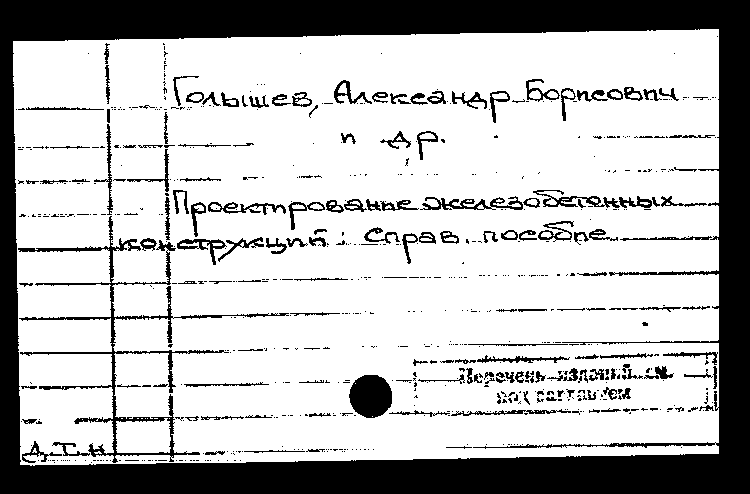 Голышев, Александр Борисович
и др.
Проектирование железобетонных
конструкций : Справ. пособие
Перечень изданий см.
под заглавием
Д.Т.Н